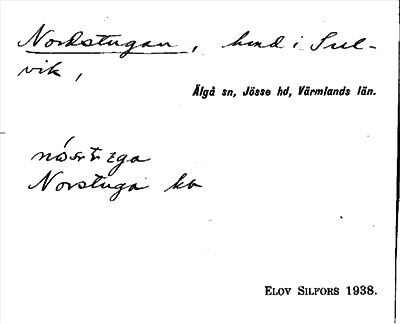 Nordstugan, hmd i Sul-
vik,
Älgå sn, Jösse hd, Värmlands län.
Norstuga kb
ELOV SILFORS 1938.